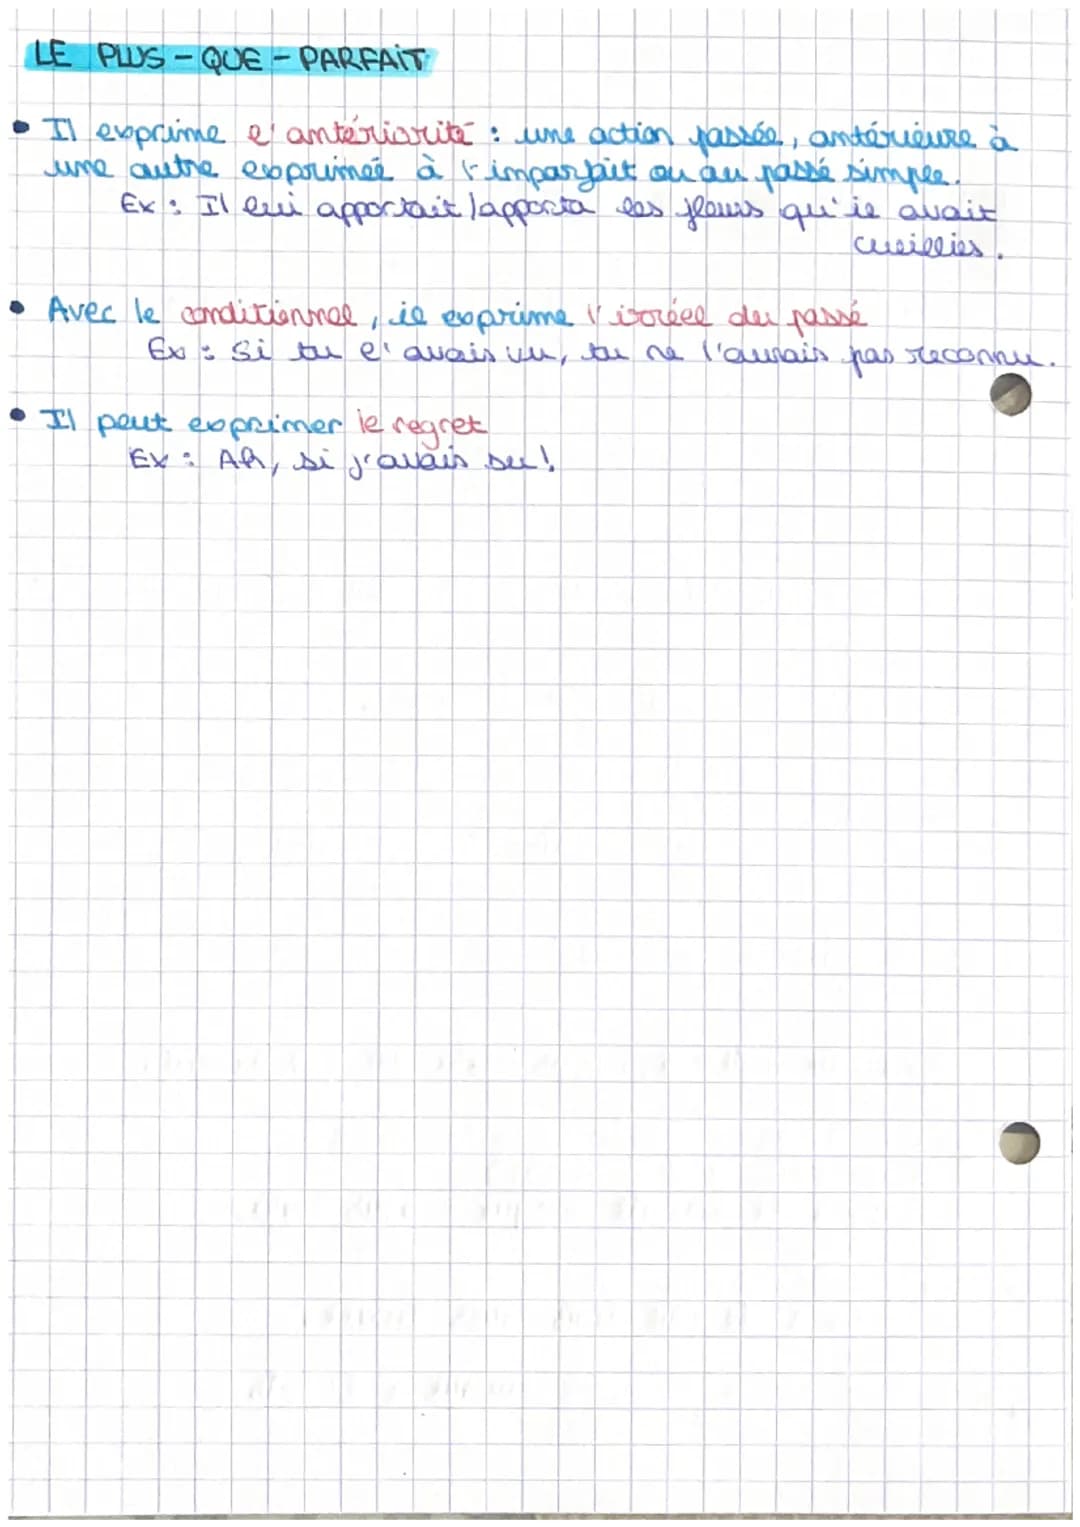 LE PLUS-QUE-PARFAIT
• Il exprime l'antériorité : une action passée, antérieure à
une autre exprimée à l'imparfait ou au passé simple.
Ex : Il lui apportait/apporta les fleurs qu'il avait
cueillies.
• Avec le conditionnel, il exprime l'irréel du passé
Ex : Si tu l'avais vu, tu ne l'aurais pas reconnu.
• Il peut exprimer le regret
Ex : Ah, si j'avais su !